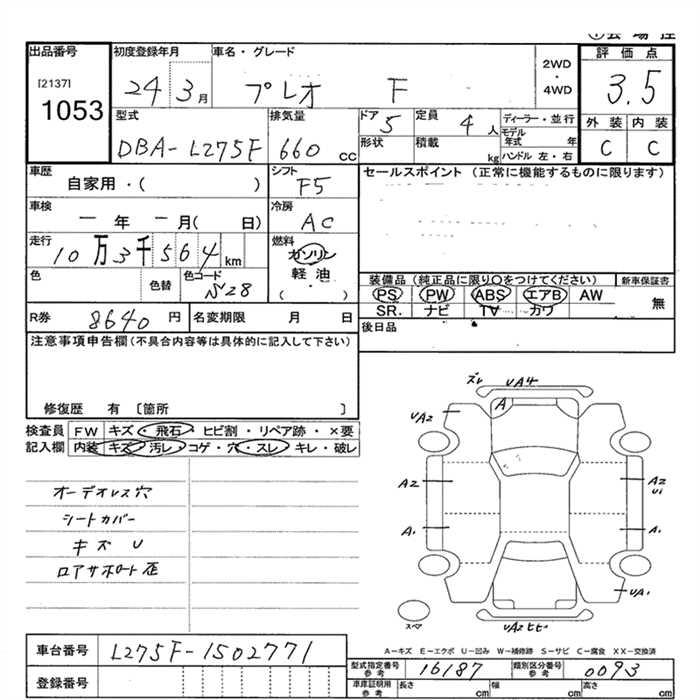 出品番号 初度登録年月 車名・グレード 2WD・4WD 評価点
[2137] 1053 24 3月 プレオ F 3.5
型式 排気量 ドア 定員 ディーラー・並行 外装 内装
DBA-L275F 660 cc 5 4人 モデル年式 年 C C
形状 積載 kg ハンドル 左・右
車歴 シフト セールスポイント (正常に機能するものに限ります)
自家用・( ) F5
車検 冷房
ー年 ー月( 日) AC
走行 燃料
10万3千564km ガソリン
軽油
( )
色 色替 色コード 装備品 (純正品に限り○をつけてください) 新車保証書
S28 PS PW ABS エアB AW 無
SR. ナビ TV カワ
R券 8640円 名変期限 月 日 後日品
注意事項申告欄(不具合内容等は具体的に記入して下さい)
修復歴 有 [箇所 ]
検査員 FW キズ・飛石・ヒビ割・リペア跡・×要
記入欄 内装 キズ・汚レ・コゲ・穴・スレ・キレ・破レ
ズレ UA4
A
UA2
A2 A2
U1
A1 A1
UA1
スペア UA2ヒビ
オーデオレス穴
シートカバー
キズ U
ロアサポート歪
A-キズ E-エクボ U-凹み W-補修跡 S-サビ C-腐食 XX-交換済
車台番号 L275F-1502771
型式指定番号 参考 16187 類別区分番号 参考 0093
登録番号 車庫証明用 参考 長さ cm 幅 cm 高さ cm